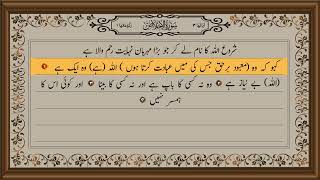 سورة الاخلاص
شروع الله کا نام لے کر جو بڑا مہربان نہایت رحم والا ہے
کہو کہ وہ (معبود برحق جس کی میں عبادت کرتا ہوں) الله (ہے) وہ ایک ہے ۱
(الله) بے نیاز ہے ۲ وہ نہ کسی کا باپ ہے اور نہ کسی کا بیٹا ۳ اور کوئی اس کا
ہمسر نہیں ۴